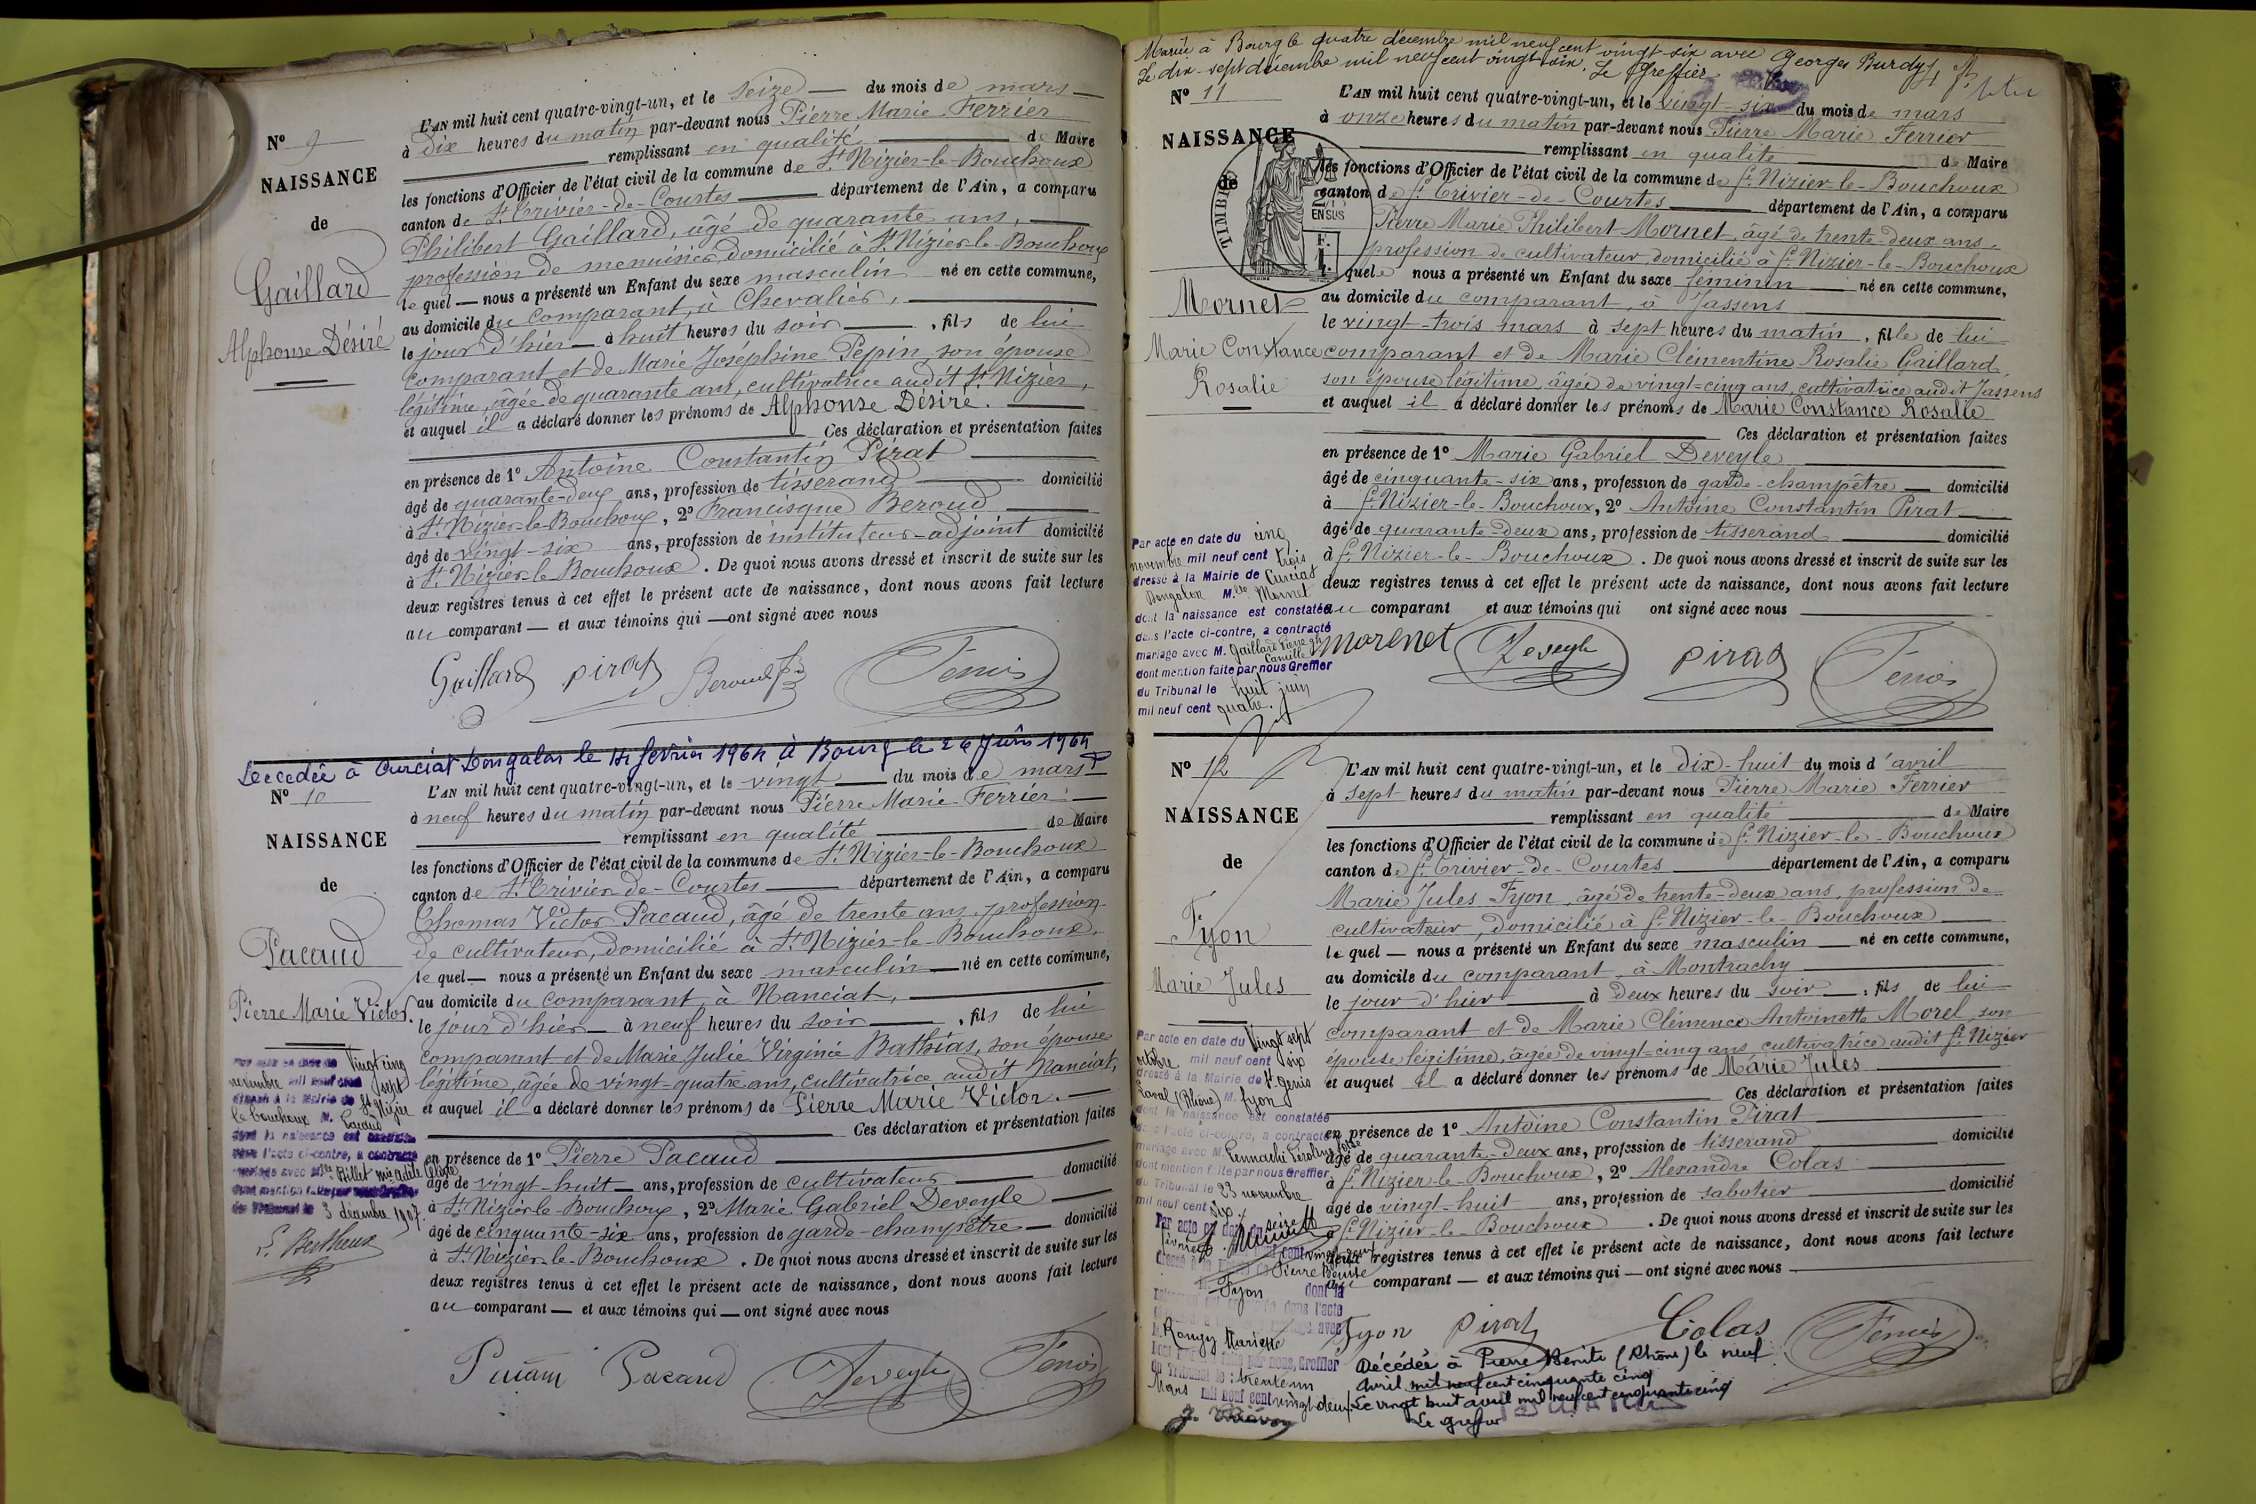 N° 9
NAISSANCE
de
Gaillard
Alphonse Désiré
L'AN mil huit cent quatre-vingt-un, et le seize du mois de mars
à dix heures du matin par-devant nous Pierre Marie Ferrier
remplissant en qualité de Maire
les fonctions d'Officier de l'état civil de la commune de St Nizier-le-Bouchoux
canton de St Trivier-de-Courtes département de l'Ain, a comparu
Philibert Gaillard, âgé de quarante ans,
profession de menuisier, domicilié à St Nizier-le-Bouchoux
lequel nous a présenté un Enfant du sexe masculin né en cette commune,
au domicile du comparant, à Chevalier,
le jour d'hier à huit heures du soir, fils de lui
comparant et de Marie Joséphine Pepin, son épouse
légitime, âgée de quarante ans, cultivatrice audit St Nizier,
et auquel il a déclaré donner les prénoms de Alphonse Désiré.
Ces déclaration et présentation faites
en présence de 1° Antoine Constantin Pirat
âgé de quarante-deux ans, profession de tisserand domicilié
à St Nizier-le-Bouchoux, 2° Francisque Beroud
âgé de vingt-six ans, profession de instituteur-adjoint domicilié
à St Nizier-le-Bouchoux. De quoi nous avons dressé et inscrit de suite sur les
deux registres tenus à cet effet le présent acte de naissance, dont nous avons fait lecture
au comparant et aux témoins qui ont signé avec nous
Gaillard Pirat Beroud Ferrier
Decedée à Curciat Dongalon le 14 fevrier 1964 à Bourg le 26 Juin 1964
N° 10
NAISSANCE
de
Pacaud
Pierre Marie Victor.
L'AN mil huit cent quatre-vingt-un, et le vingt du mois de mars
à neuf heures du matin par-devant nous Pierre Marie Ferrier
remplissant en qualité de Maire
les fonctions d'Officier de l'état civil de la commune de St Nizier-le-Bouchoux
canton de St Trivier-de-Courtes département de l'Ain, a comparu
Thomas Victor Pacaud, âgé de trente ans, profession
de cultivateur, domicilié à St Nizier-le-Bouchoux,
lequel nous a présenté un Enfant du sexe masculin né en cette commune,
au domicile du comparant, à Nanciat,
le jour d'hier à neuf heures du soir, fils de lui
comparant et de Marie Julie Virginie Bathias, son épouse
légitime, âgée de vingt-quatre ans, cultivatrice audit Nanciat,
et auquel il a déclaré donner les prénoms de Pierre Marie Victor.
Ces déclaration et présentation faites
en présence de 1° Pierre Pacaud
âgé de vingt-huit ans, profession de cultivateur domicilié
à St Nizier-le-Bouchoux, 2° Marie Gabriel Deveyle
âgé de cinquante-six ans, profession de garde-champêtre domicilié
à St Nizier-le-Bouchoux. De quoi nous avons dressé et inscrit de suite sur les
deux registres tenus à cet effet le présent acte de naissance, dont nous avons fait lecture
au comparant et aux témoins qui ont signé avec nous
Par acte en date du vingt cinq
novembre mil neuf cent sept
dressé à la Mairie de St Nizier
le bouchoux M. Pacaud
dont la naissance est constatée
dans l'acte ci-contre, a contracté
mariage avec Mlle Billet
dont mention faite par nous Greffier
du Tribunal le 3 décembre 1907.
Pacaud Deveyle Ferrier
Mariée à Bourg le quatre décembre mil neuf cent vingt-six avec Georges Burdy
Le dix-sept décembre mil neuf cent vingt-six. Le Greffier
N° 11
NAISSANCE
de
Mornet
Marie Constance
Rosalie
L'AN mil huit cent quatre-vingt-un, et le vingt-six du mois de mars
à onze heures du matin par-devant nous Pierre Marie Ferrier
remplissant en qualité de Maire
les fonctions d'Officier de l'état civil de la commune de St Nizier-le-Bouchoux
canton de St Trivier-de-Courtes département de l'Ain, a comparu
Pierre Marie Philibert Mornet, âgé de trente-deux ans,
profession de cultivateur, domicilié à St Nizier-le-Bouchoux
quel nous a présenté un Enfant du sexe féminin né en cette commune,
au domicile du comparant, à Jassens
le vingt-trois mars à sept heures du matin, fille de lui
comparant et de Marie Clémentine Rosalie Gaillard,
son épouse légitime, âgée de vingt-cinq ans, cultivatrice audit Jassens
et auquel il a déclaré donner les prénoms de Marie Constance Rosalie
Ces déclaration et présentation faites
en présence de 1° Marie Gabriel Deveyle
âgé de cinquante-six ans, profession de garde-champêtre domicilié
à St Nizier-le-Bouchoux, 2° Antoine Constantin Pirat
âgé de quarante-deux ans, profession de tisserand domicilié
à St Nizier-le-Bouchoux. De quoi nous avons dressé et inscrit de suite sur les
deux registres tenus à cet effet le présent acte de naissance, dont nous avons fait lecture
au comparant et aux témoins qui ont signé avec nous
Par acte en date du cinq
novembre mil neuf cent trois
dressé à la Mairie de Curciat
Dongalon Mlle Mornet
dont la naissance est constatée
dans l'acte ci-contre, a contracté
mariage avec M. Gaillard Pierre
Camille
dont mention faite par nous Greffier
du Tribunal le huit juin
mil neuf cent quatre.
Mornet Deveyle Pirat Ferrier
N° 12
NAISSANCE
de
Fyon
Marie Jules
L'AN mil huit cent quatre-vingt-un, et le dix-huit du mois d'avril
à sept heures du matin par-devant nous Pierre Marie Ferrier
remplissant en qualité de Maire
les fonctions d'Officier de l'état civil de la commune de St Nizier-le-Bouchoux
canton de St Trivier-de-Courtes département de l'Ain, a comparu
Marie Jules Fyon, âgé de trente-deux ans, profession de
cultivateur, domicilié à St Nizier-le-Bouchoux
lequel nous a présenté un Enfant du sexe masculin né en cette commune,
au domicile du comparant, à Montrachy
le jour d'hier à deux heures du soir, fils de lui
comparant et de Marie Clémence Antoinette Morel, son
épouse légitime, âgée de vingt-cinq ans cultivatrice audit St Nizier
et auquel il a déclaré donner les prénoms de Marie Jules
Ces déclaration et présentation faites
en présence de 1° Antoine Constantin Pirat
âgé de quarante-deux ans, profession de tisserand domicilié
à St Nizier-le-Bouchoux, 2° Alexandre Colas
âgé de vingt-huit ans, profession de sabotier domicilié
à St Nizier-le-Bouchoux. De quoi nous avons dressé et inscrit de suite sur les
deux registres tenus à cet effet le présent acte de naissance, dont nous avons fait lecture
au comparant et aux témoins qui ont signé avec nous
Par acte en date du vingt sept
octobre mil neuf cent six
dressé à la Mairie de St Genis
Laval (Rhône) M. Fyon
dont la naissance est constatée
dans l'acte ci-contre, a contracté
mariage avec M.
dont mention faite par nous Greffier
du Tribunal le 23 novembre
mil neuf cent six
Par acte en date du seize
Pierre Bénite
Fyon dont la
dans l'acte
avec
Rougy Mariette
par nous, Greffier
du Tribunal le trente un
Mars mil neuf cent vingt deux
Fyon Pirat Colas Ferrier
Décédée à Pierre Bénite (Rhône) le neuf
avril mil neuf cent cinquante cinq
Le vingt huit avril mil neuf cent cinquante cinq
Le greffier